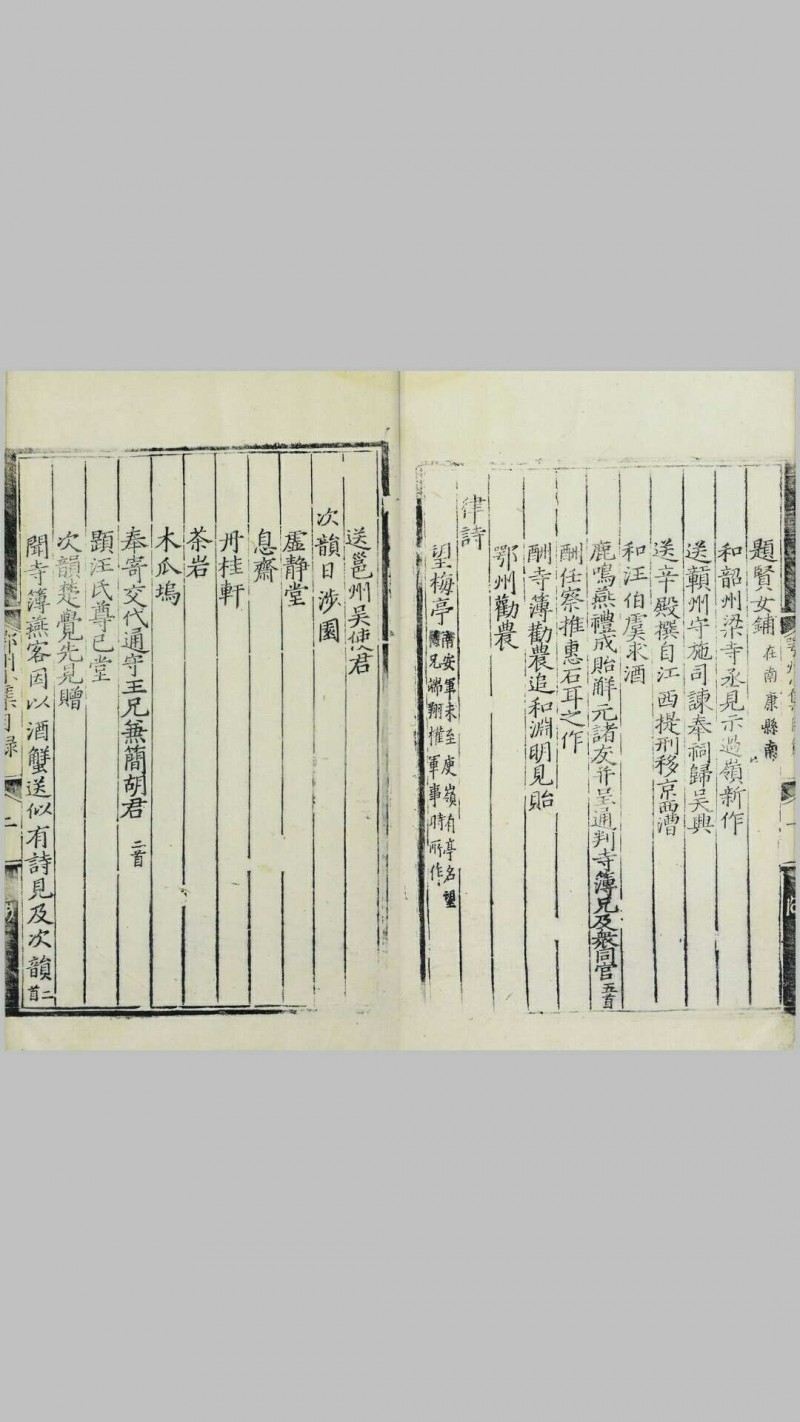 題賢女鋪在南康縣南
和韶州梁寺丞見示過嶺新作
送贛州守施司諫奉祠歸吳興
送辛殿撰自江西提刑移京西漕
和汪伯虞求酒
鹿鳴燕禮成貽解元諸友并呈通判寺簿兄及衆同官五首
酬任察推惠石耳之作
酬寺簿勸農追和淵明見貽
鄂州勸農
律詩
望梅亭南安軍未至庾嶺有亭名望
兄端翔權軍事時所作
送邕州吳使君
次韻日涉園
虛静堂
息齋
丹桂軒
茶岩
木瓜塢
奉寄交代通守王兄兼簡胡君二首
題汪氏尊己堂
次韻楚覺先見贈
聞寺簿燕客因以酒蟹送似有詩見及次韻二首
鄂州小集目録
二